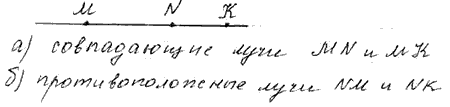 M N K
а) совпадающие лучи MN и MK
б) противоположные лучи NM и NK